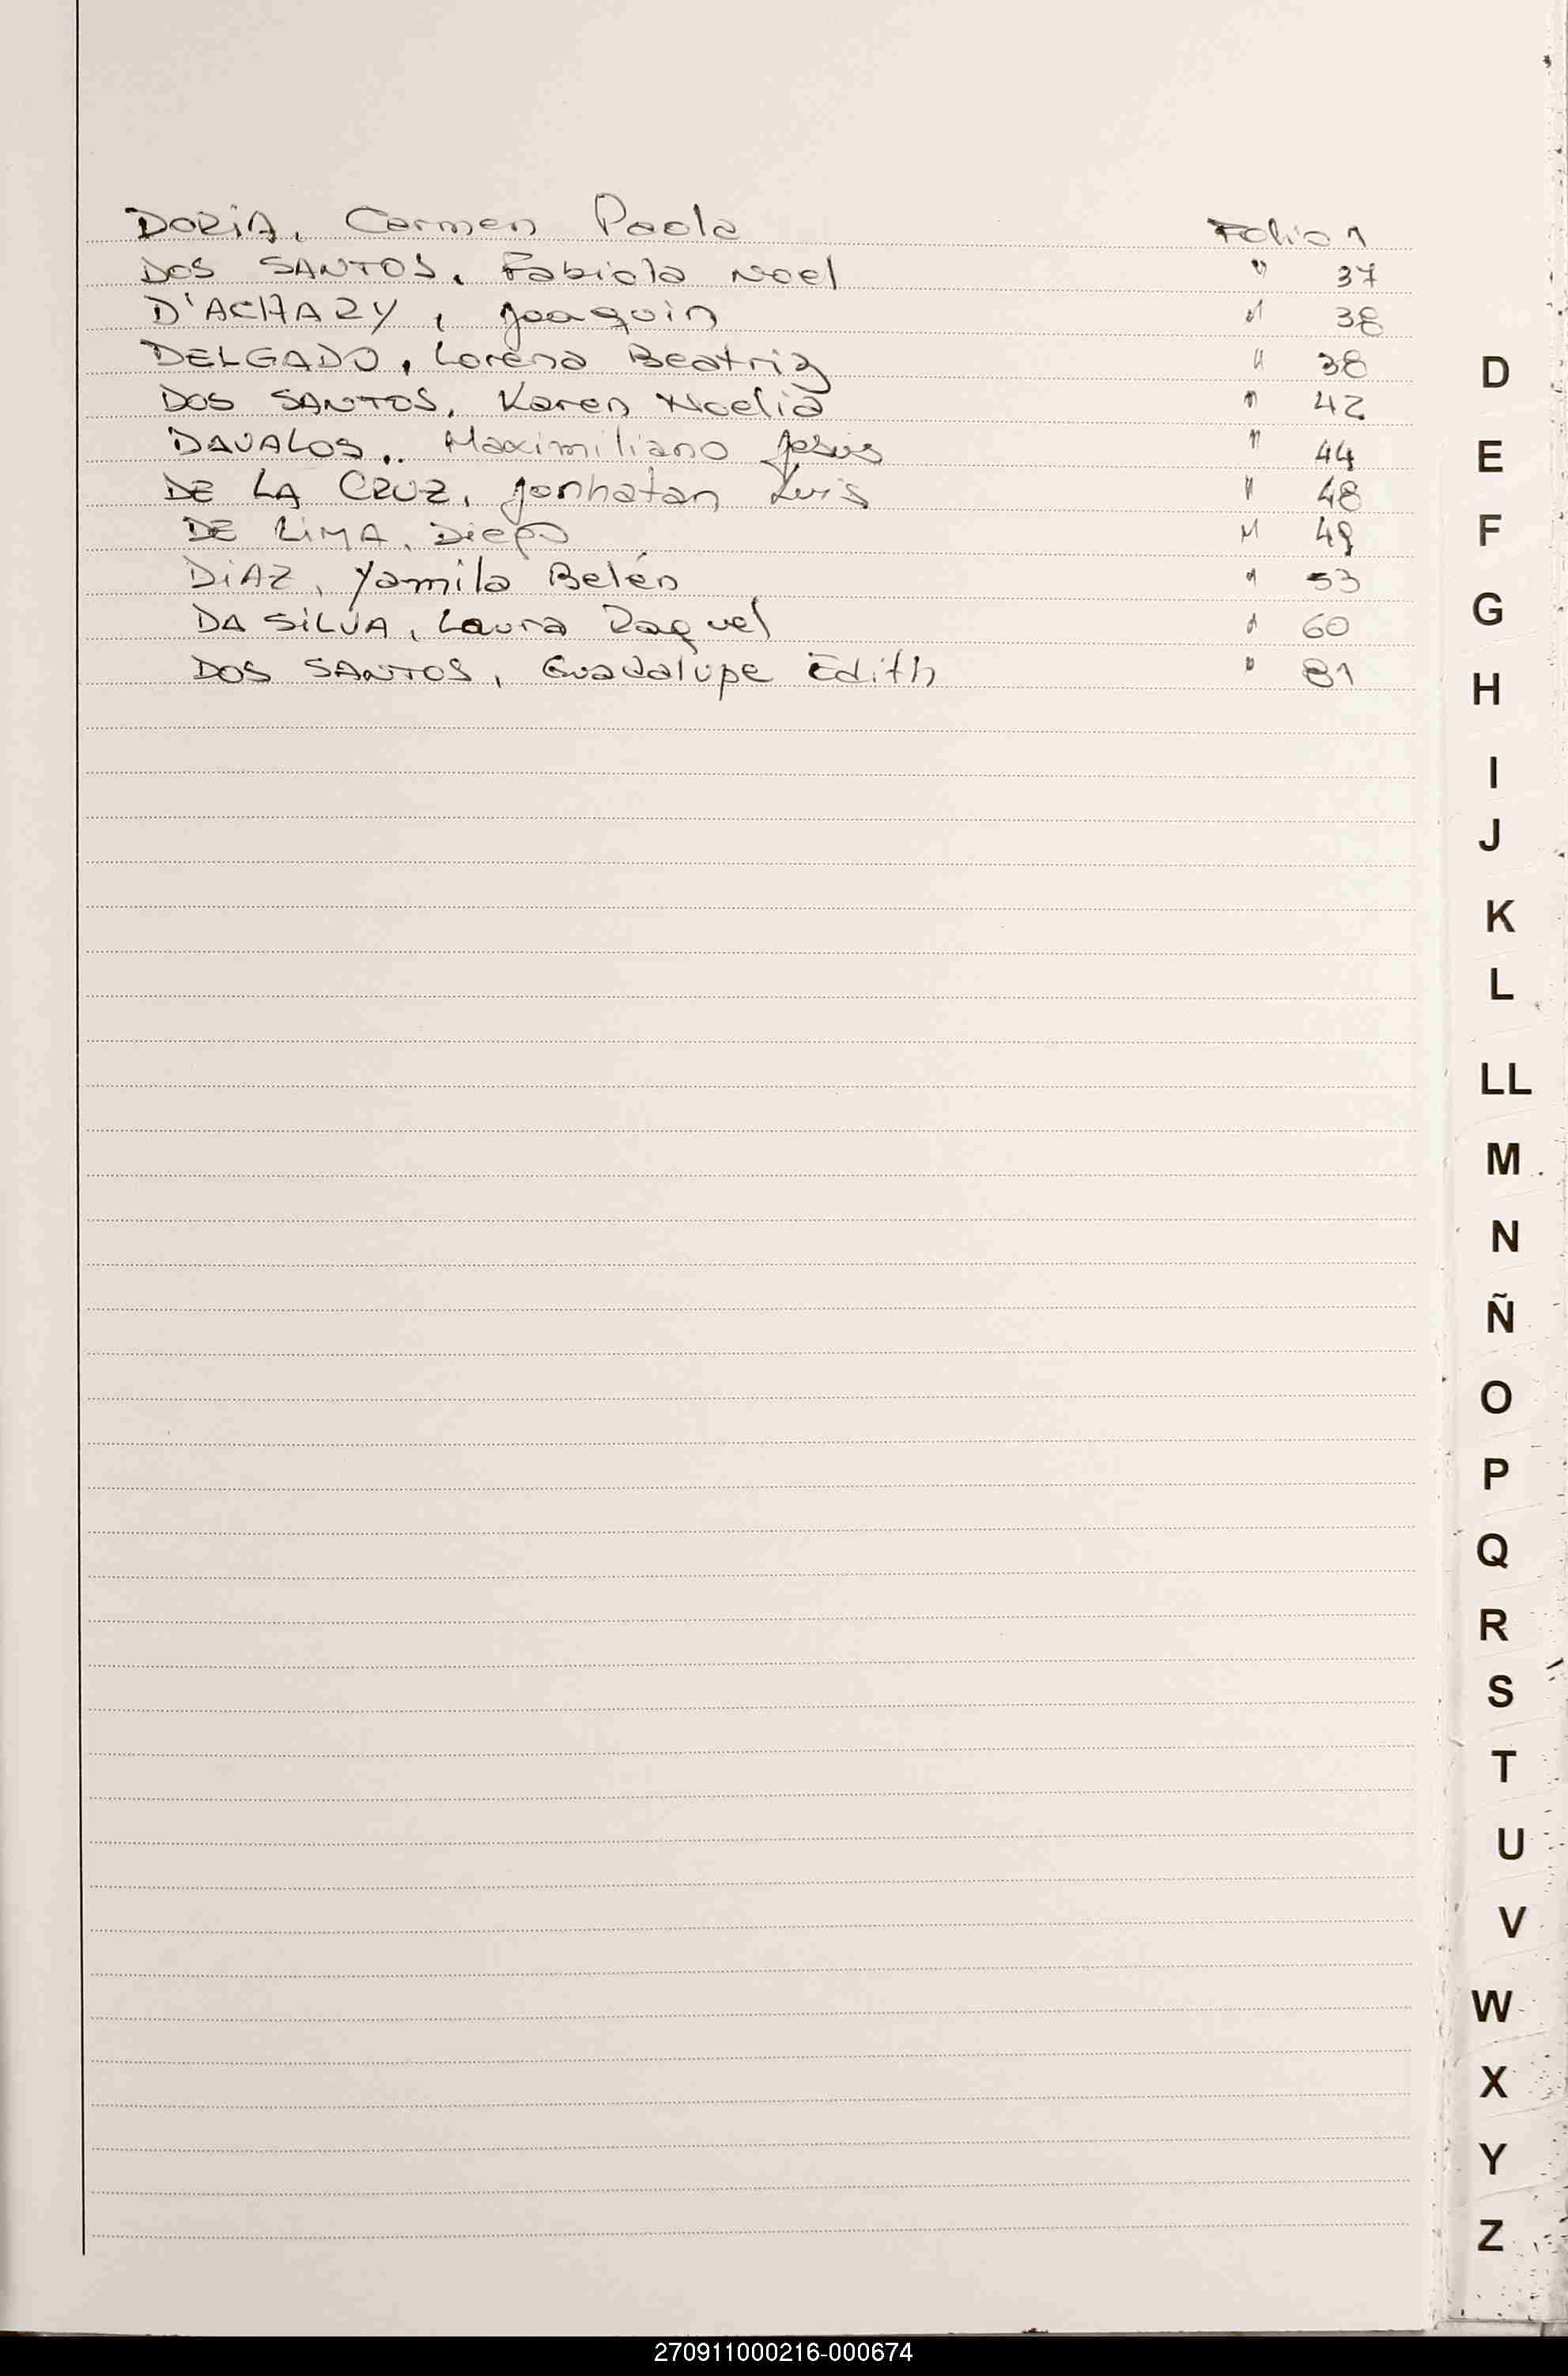 DORiA, Carmen Paola Folio 1
DOS SANTOS, Fabiola Noel " 37
D'ACHARY, Joaquin " 38
DELGADO, Lorena Beatriz " 38
DOS SANTOS, Karen Noelia " 42
DAVALOS, Maximiliano Jesús " 44
DE LA CRUZ, Jonhatan Luis " 48
DE LiMA, Diego " 49
DiAZ, Yamila Belén " 53
DA SiLVA, Laura Raquel " 60
DOS SANTOS, Guadalupe Edith " 81
D
E
F
G
H
I
J
K
L
LL
M
N
Ñ
O
P
Q
R
S
T
U
V
W
X
Y
Z
270911000216-000674